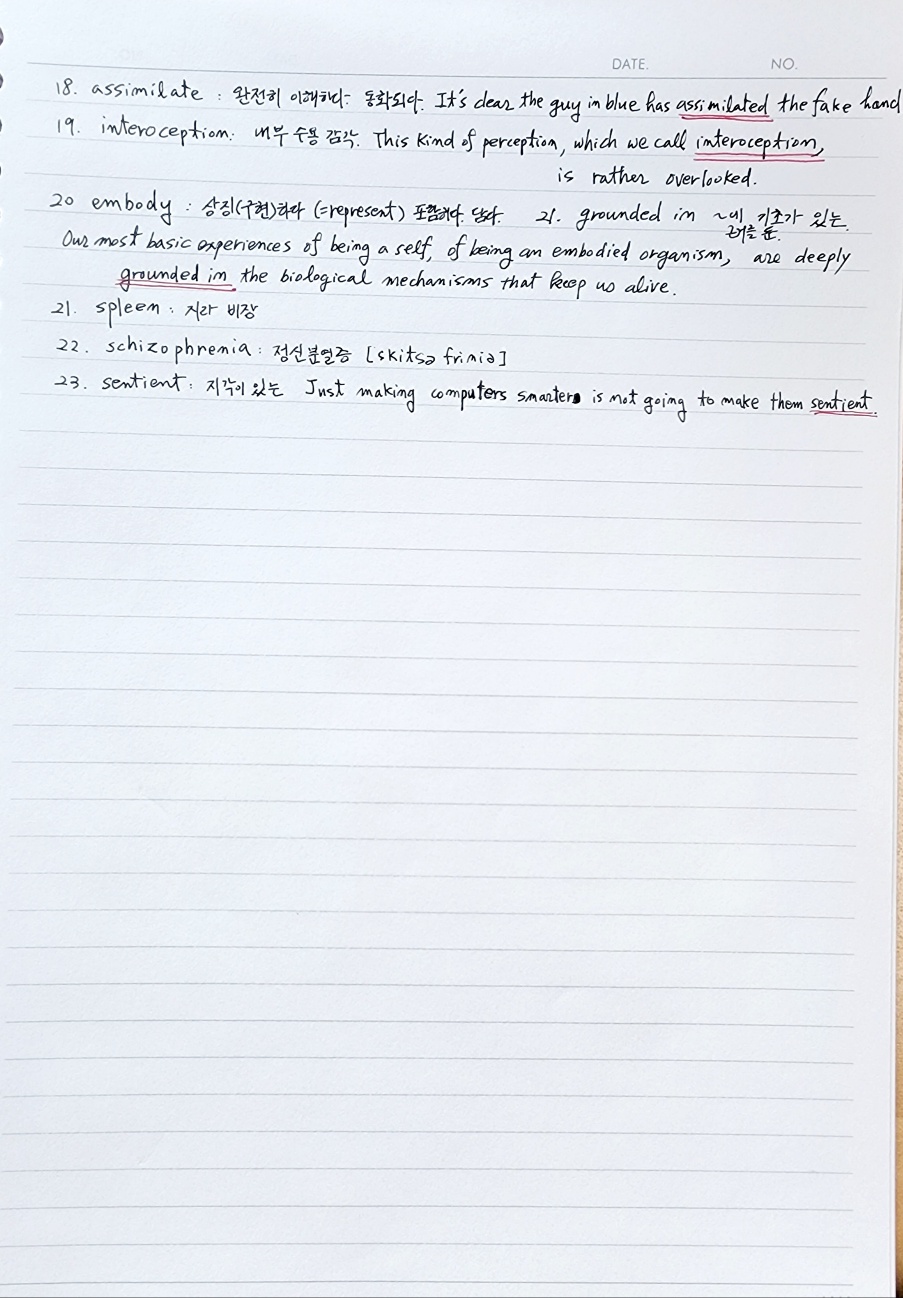 DATE. NO.
18. assimilate : 완전히 이해하다. 동화되다. It's clear the guy in blue has assimilated the fake hand
19. interoception : 내부 수용 감각. This kind of perception, which we call interoception,
is rather overlooked.
20 embody : 상징(구현)하다 (=represent) 포함하다. 담다. 21. grounded in ~에 기초가 있는.
근거를 둔.
Our most basic experiences of being a self, of being an embodied organism, are deeply
grounded in the biological mechanisms that keep us alive.
21. spleen : 지라 비장
22. schizophrenia : 정신분열증 [skitsə friniə]
23. sentient : 지각이 있는 Just making computers smarter is not going to make them sentient.